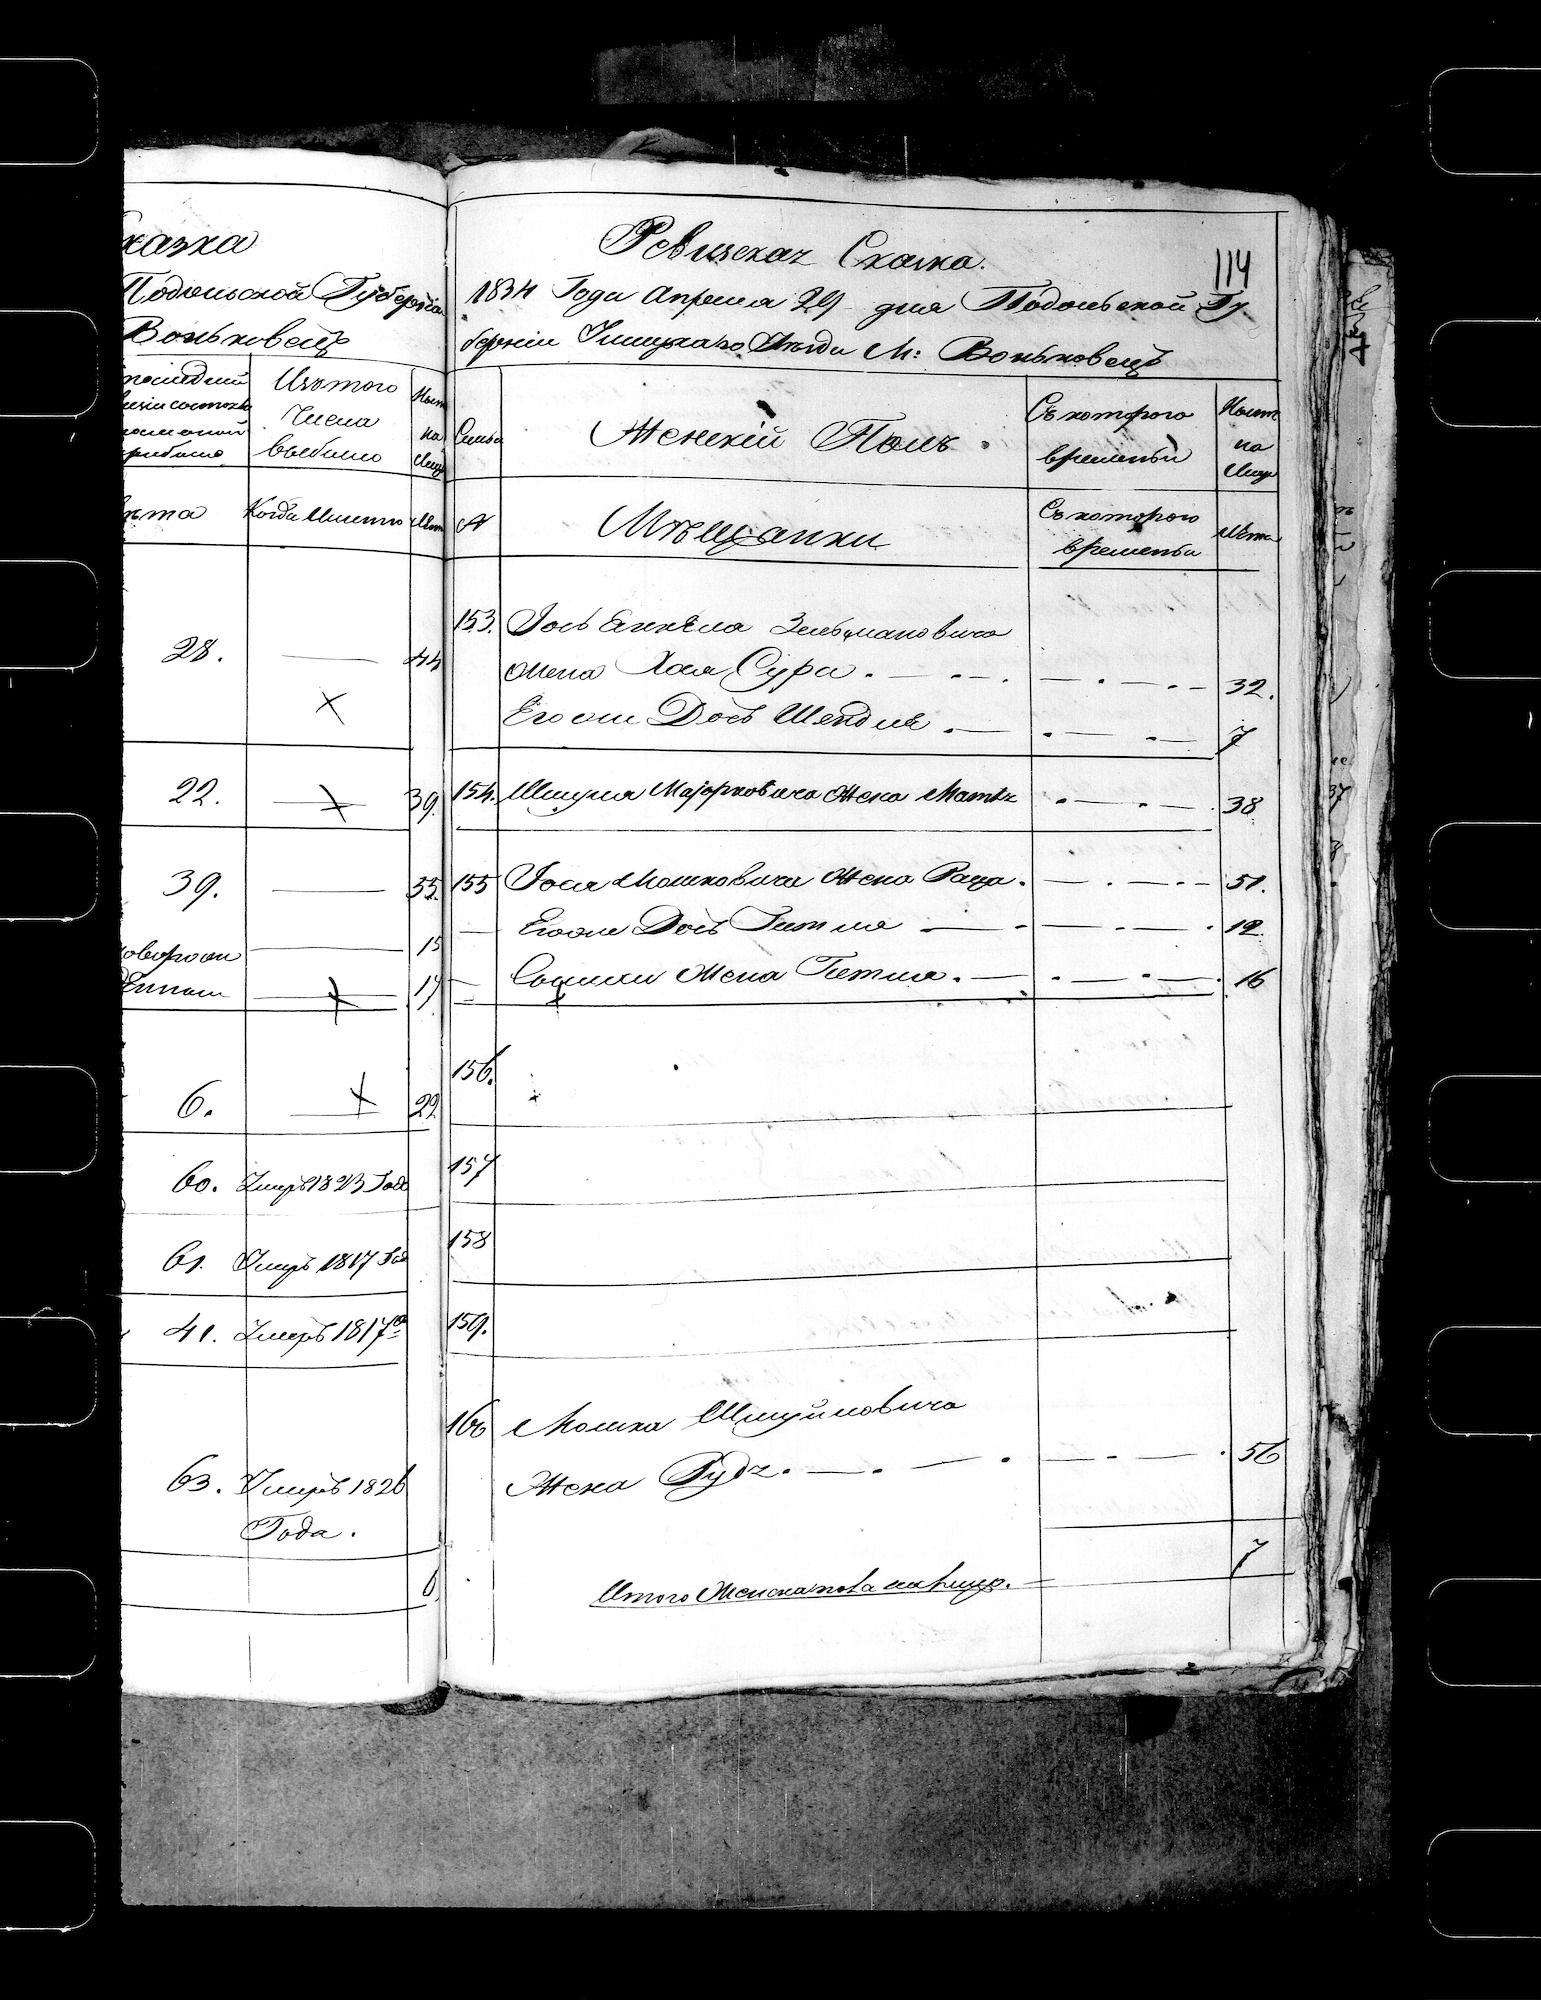 казка
Подольской Губерніи
Воньковецъ
Изтого
Числа
выбыло
Когда Имянно
Лѣта
28. — 44
22. — 39.
39. — 35.
— 15
— 17
6. — 22.
60. Умеръ 1823 Года
61. Умеръ 1817 Года
41. Умеръ 1817 го
63. Умеръ 1826
Года.
6.
Ревизская Сказка.
114
1834 Года Апреля 29 дня Подольской Гу
берніи Ушицкаго Уѣзда М: Воньковецъ
Семьи Женскій Полъ.
Съ которого
времѣни
Ныне
на
Лицо
№ Мѣщанки
Съ которого
времѣни
Лѣта
153. Іось Янкѣла Зельмановича
жена Хая Сура . — . — . 32.
Его Дочь Шендля . — . — 7
154. Шмуля Маіорковича Жена . — . — . 38
155 Іося Мошковича Жена . — . — . 51.
— Дочь Гитля — . — . — . 12.
— жена Гитля . — . — . 16
156.
157
158
159.
160 Мошка Шмуйловича
Жена . — . — . 56
7
Итого Женска пола налицо. —